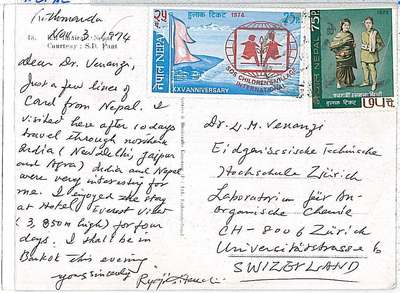 Kathmandu
Nov. 3. 1974
Courtesy : S.D. Pant
Dear Dr. Venanzi,
Just a few lines of
Card from Nepal. I
visited here after 10 days
travel through northern
India (New Delhi, Jaipur
and Agra) India and Nepal
were very interesting for
me. I enjoyed the stay
at Hotel Everest View
(3,850m high) for four
days. I shall be in
Bankok this evening
yours sincerely
नेपाल NEPAL
हुलाक टिकट 1974
25P.
SOS CHILDREN'S VILLAGE
INTERNATIONAL
XXV ANNIVERSARY
नेपाल NEPAL
75P.
1974
हुलाक टिकट
७५ पै.
Dr. L.M. Venanzi
Eidgenössische Technische
Hochschule Zürich
Laboratorium für An-
organische Chemie
CH-8006 Zürich
Universitätstrasse 6
SWIZERLAND